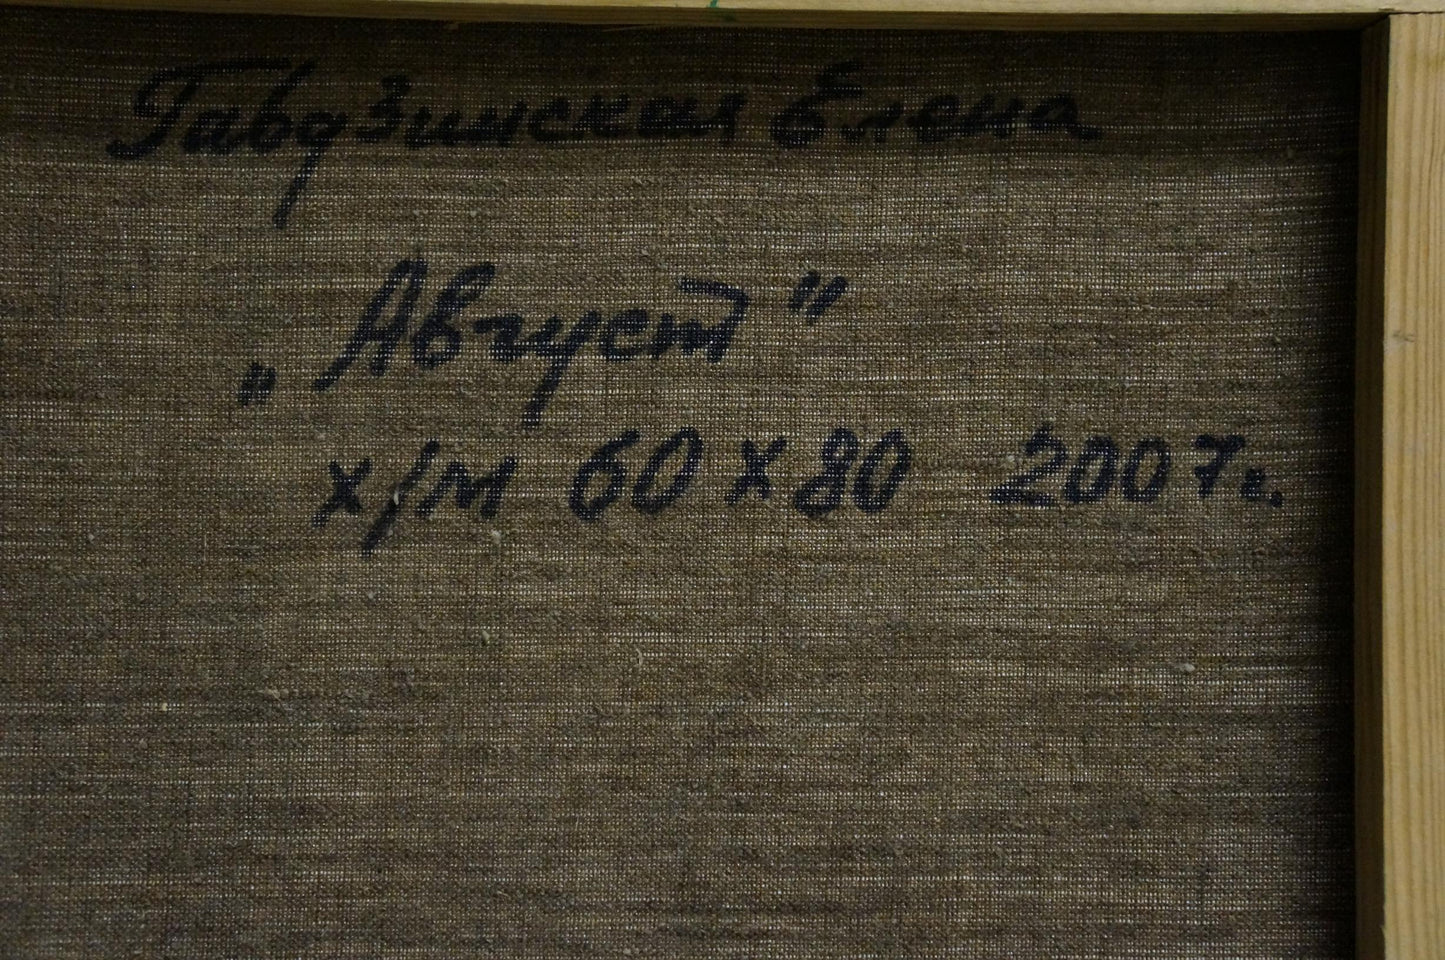 Гавдзинская Елена
„Август"
х/м 60х80 2007г.